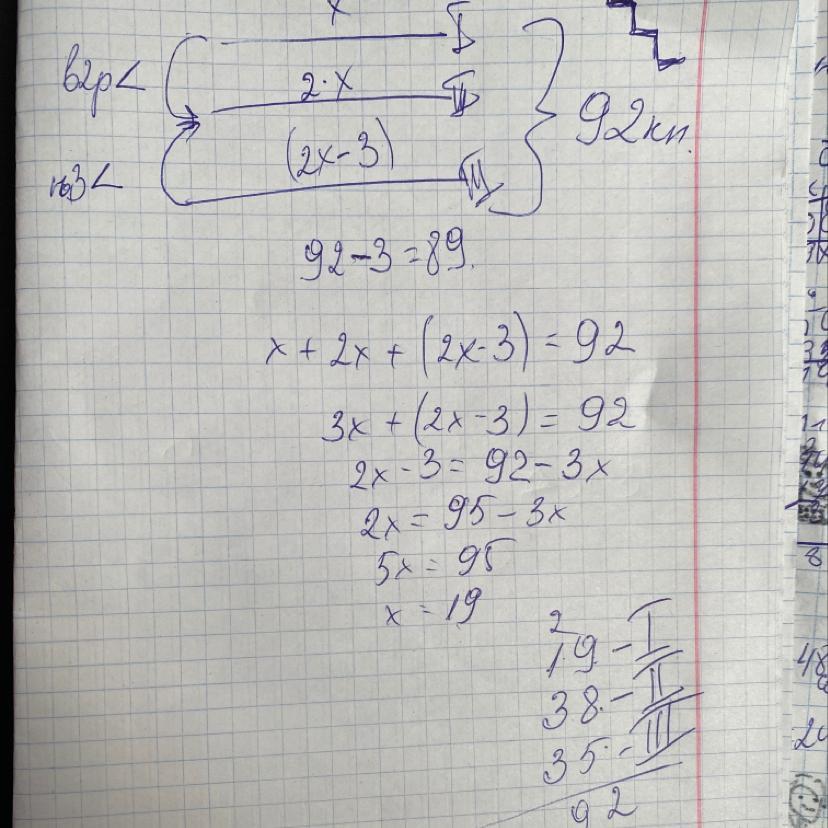 x I
в2р< 2·x II 92кн.
на3< (2x-3) III
92-3=89.
x + 2x + (2x-3) = 92
3x + (2x-3) = 92
2x-3 = 92-3x
2x = 95-3x
5x = 95
x = 19
2
19-I
38-II
35-III
92